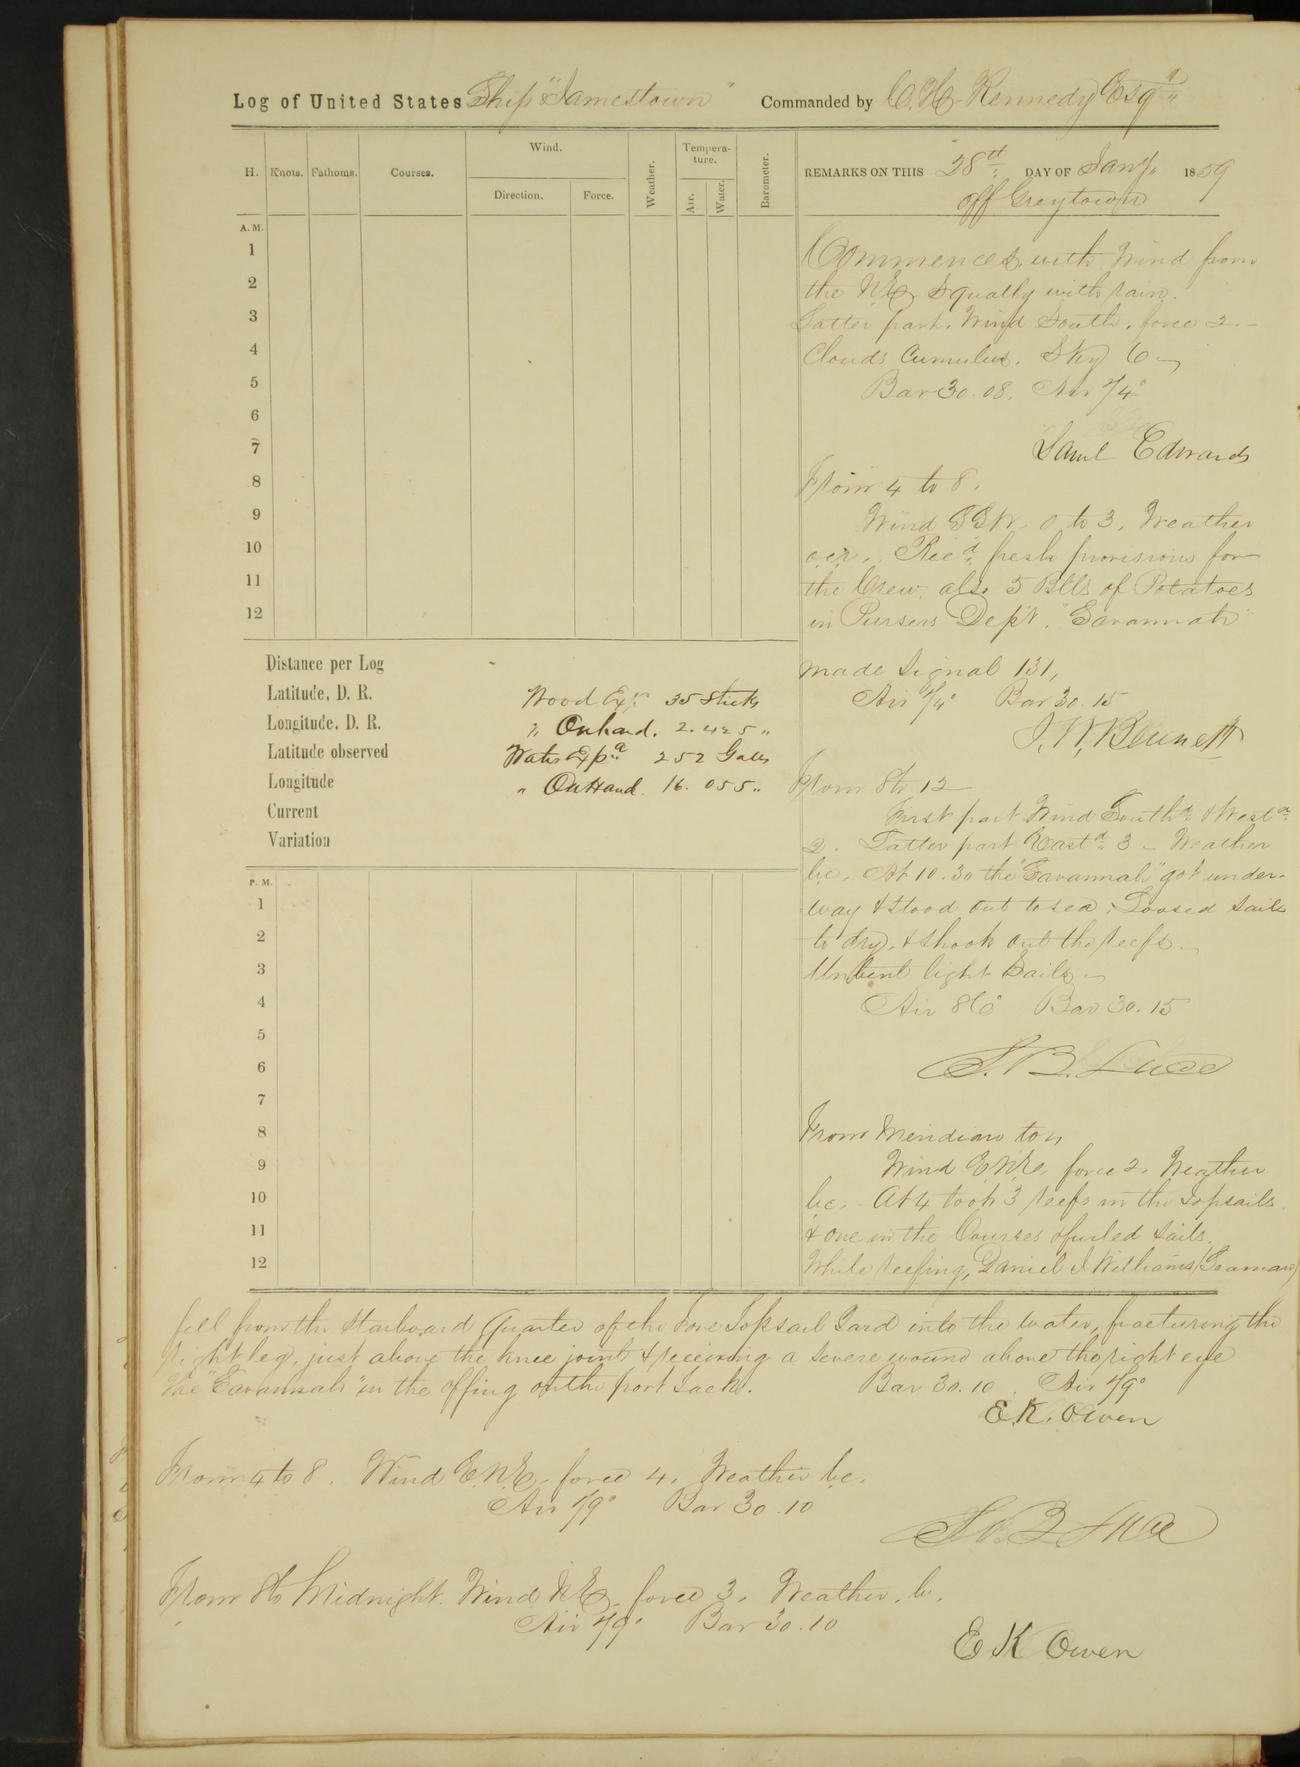 Log of United States Ship "Jamestown" Commanded by C. H. Kennedy Esqr
H. Knots. Fathoms. Courses. Wind. Direction. Force. Weather. Tempera-ture. Air. Water. Barometer.
REMARKS ON THIS 28th DAY OF Jany. 1859
off Greytown
A. M.
1
2
3
4
5
6
7
8
9
10
11
12
Commences with Wind from
the N.E. Squally with rain.
Latter part. Wind South. force 2.
Clouds Cumulus. Sky 6
Bar 30.08. Air 74°
Saml Edwards
From 4 to 8.
Wind SSW. 0 to 3. Weather
o.c.r. Recd. fresh provisions for
the Crew, also 5 Blls of Potatoes
in Pursers Dept. "Savannah"
made signal 131,
Air 74° Bar 30.15
J. W. Bennett
Distance per Log
Latitude, D. R.
Longitude, D. R.
Latitude observed
Longitude
Current
Variation
Wood Exp. 35 Sticks
" On hand. 2.425 "
Water Expd. 252 Galls
" On Hand. 16.055 "
From 8 to 12
First part Wind Southd. & Westd.
2. Latter part Eastd. 3 - Weather
b.c. At 10.30 the "Savannah" got under-
way & stood out to sea; Loosed sails
to dry, & shook out the reefs.
Unbent light Sails
Air 86° Bar 30.15
S. B. Luce
From Meridian to 4
Wind E.N.E. force 2. Weather
b.c. At 4 took 3 reefs in the Topsails
& one in the Courses & furled sails.
While reefing, Daniel J Williams (Seaman)
P. M.
1
2
3
4
5
6
7
8
9
10
11
12
fell from the Starboard Quarter of the Fore Topsail Yard into the water, fracturing the
right leg, just above the knee joint & receiving a severe wound above the right eye
The "Savannah" in the offing on the port Tack. Bar 30.10. Air 79°
E. K. Owen
From 4 to 8. Wind E.N.E. force 4. Weather b.c.
Air 79° Bar 30.10
S. B. Luce
From 8 to Midnight. Wind N.E. force 3. Weather. b.
Air 79° Bar 30.10
E K Owen